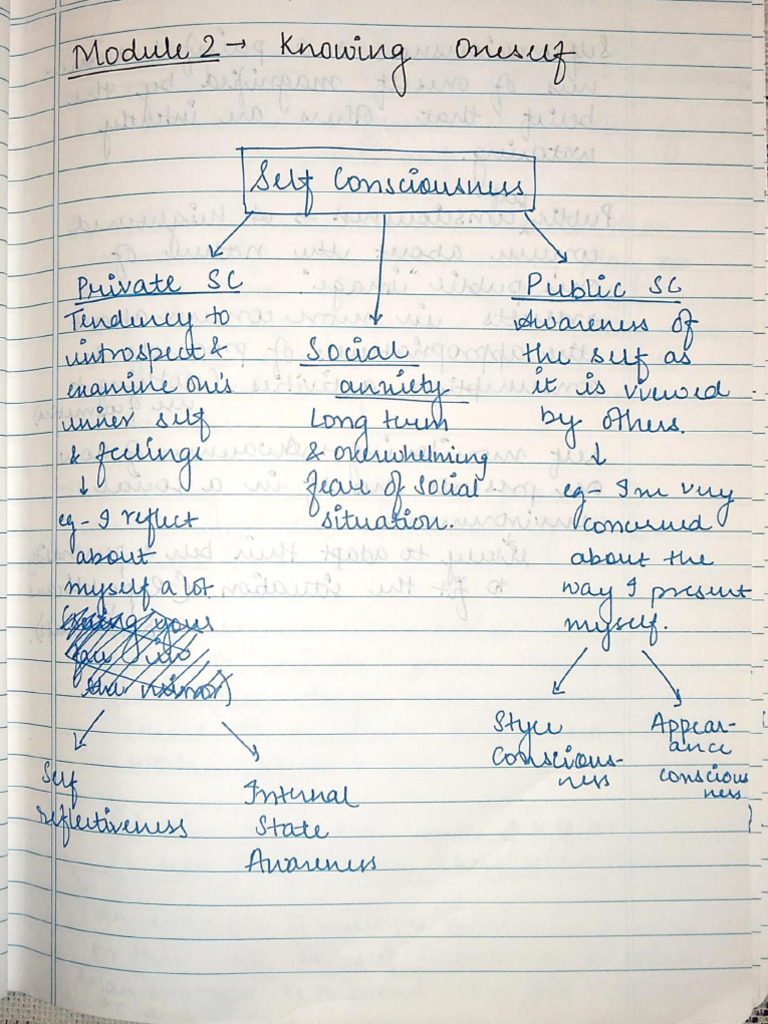 Module 2 → Knowing Oneself
Self Consciousness
Private SC
Tendency to
introspect &
examine one's
inner self
& feelings
↓
eg - I reflect
about
myself a lot
Self
reflectiveness
Internal
State
Awareness
Social
anxiety
Long term
& overwhelming
fear of social
situation.
Public SC
Awareness of
the self as
it is viewed
by others.
↓
eg - I'm very
concerned
about the
way I present
myself.
Style
Conscious-
ness
Appear-
ance
conscious
ness